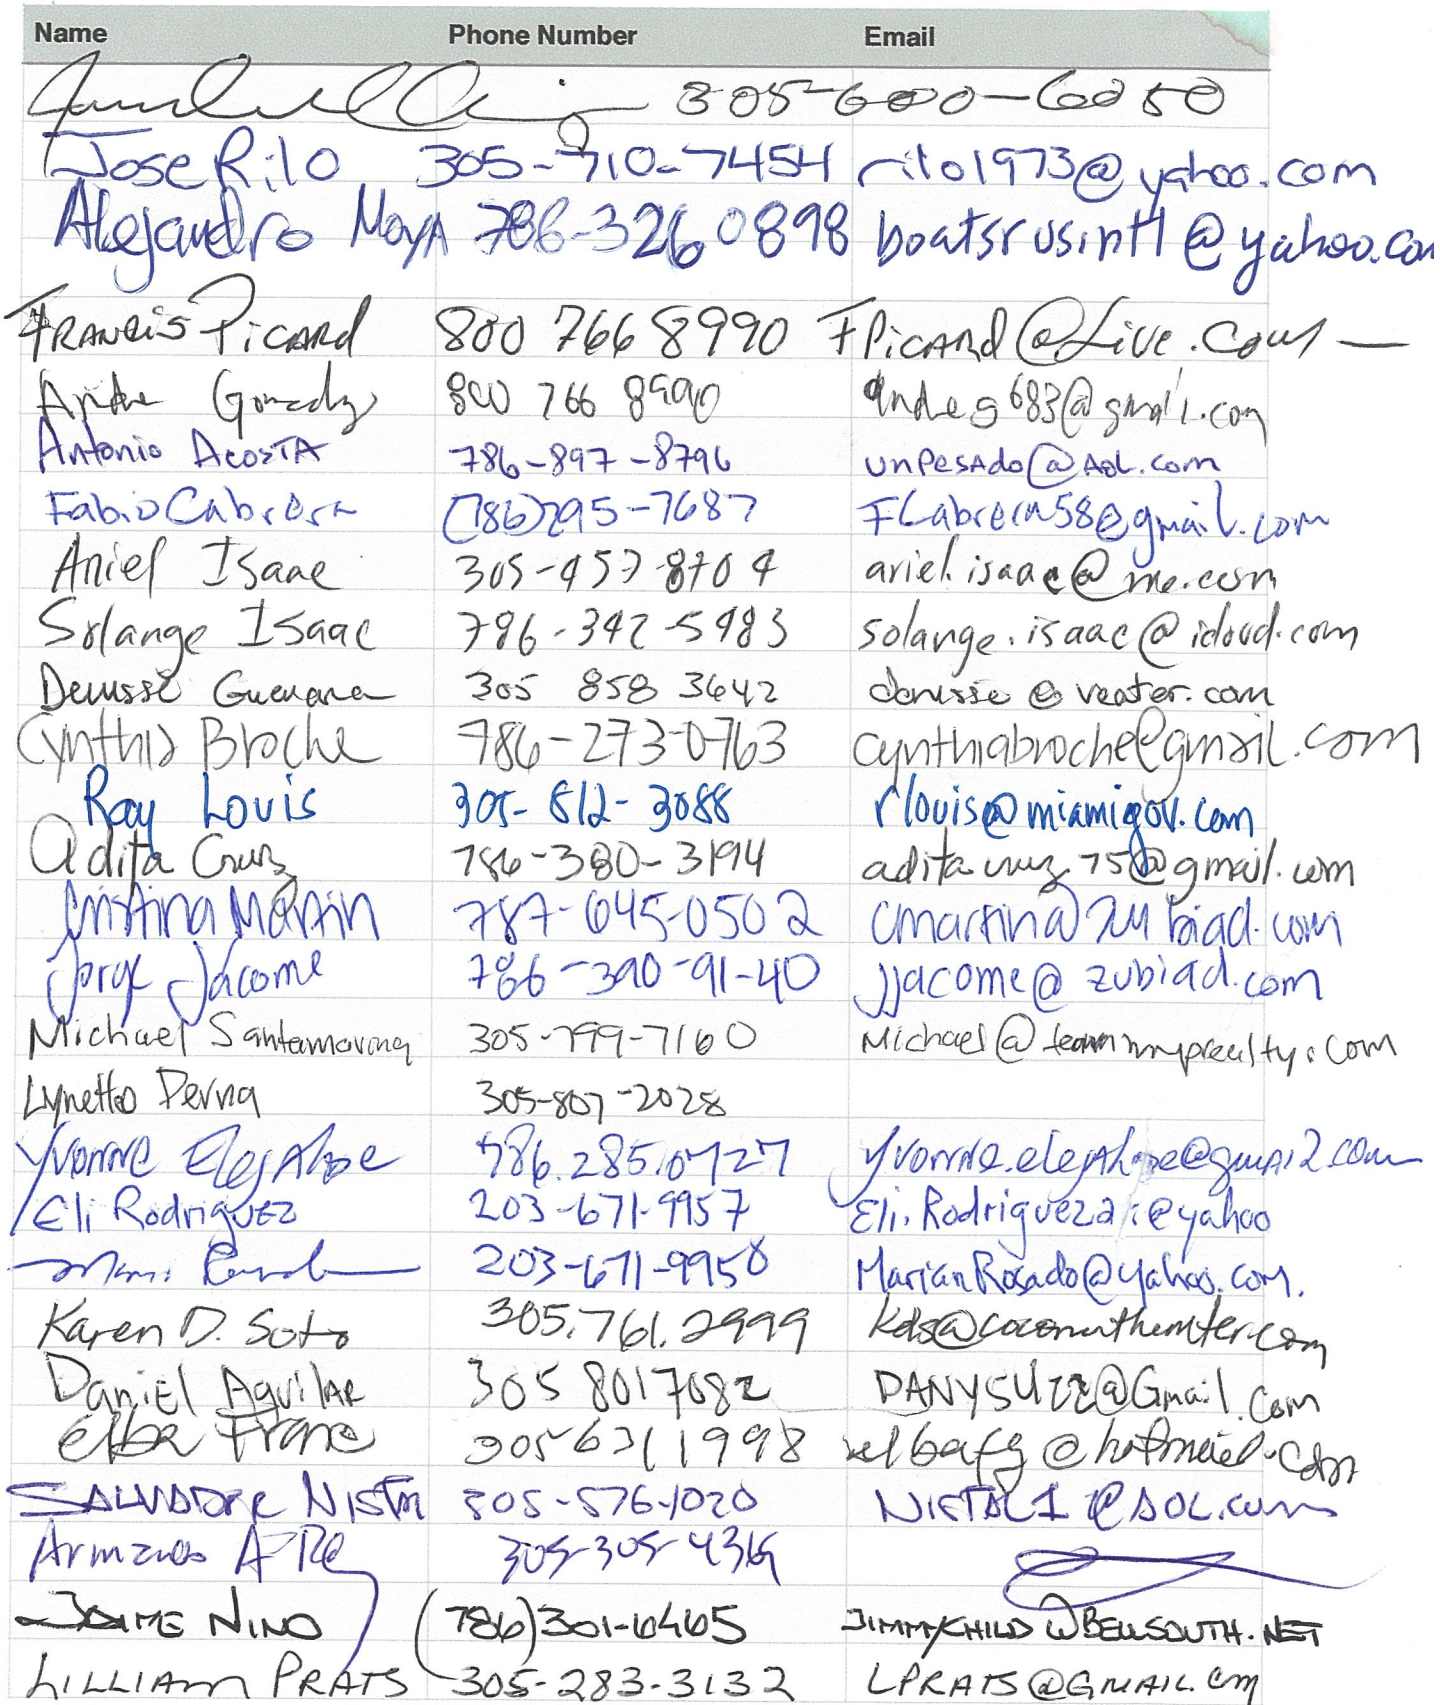 Name Phone Number Email
305-600-6050
Jose Rilo 305-710-7454 rilo1973@yahoo.com
Alejandro Moya 786-326 0898 boatsrusintl@yahoo.com
Francis Picard 800 766 8990 FPicard@Live.com
800 766 8990 andreg683@gmail.com
Antonio Acosta 786-897-8796 unpesado@AOL.com
Fabio Cabrera (786)295-7687 FCabrera58@gmail.com
Ariel Isaac 305-457-8704 ariel.isaac@me.com
Solange Isaac 786-342-5983 solange.isaac@icloud.com
Denisse Guevara 305 858 3642 denisse@veater.com
Cynthia Broche 786-273-0763 cynthiabroche@gmail.com
Ray Louis 305-812-3088 rlouis@miamigov.com
Adita Cruz 786-380-3194 aditacruz75@gmail.com
Cristina Martin 787-645-0502 cmartin@zubiad.com
Jorge Jácome 786-390-91-40 jjacome@zubiad.com
Michael Santamaria 305-799-7160 Michael@teammmprealty.com
Lynette Perna 305-807-2028
Yvonne 786.285.0727
Eli Rodriguez 203-671-9957 Eli.Rodriguez2@yahoo
203-671-9958 MarianRosado@yahoo.com.
Karen D. Soto 305.761.2999 kds@coconuthunter.com
Daniel Aguilar 305 8017082 DANYSU22@Gmail.com
Elba Franc 305 631 1998 elbafg@hotmail.com
SALVADOR NISTAL 305-576-1020 NISTAL1@AOL.com
Armando A Re 305-305-4369
JAIME NINO (786)301-6465 JIMMYCHILD@BELLSOUTH.NET
LILLIAM PRATS 305-283-3132 LPRATS@GMAIL.com